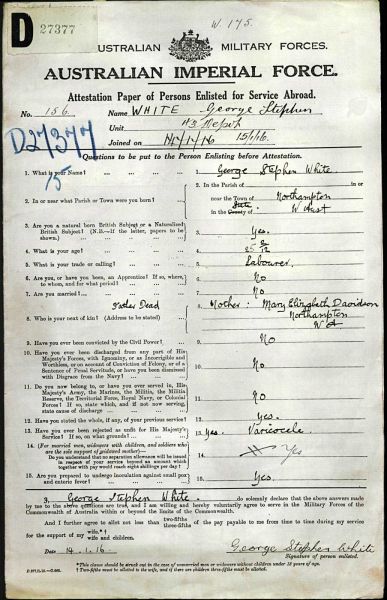 D 27377
W. 175.
USTRALIAN MILITARY FORCES.
AUSTRALIAN IMPERIAL FORCE.
Attestation Paper of Persons Enlisted for Service Abroad.
No. 156 Name WHITE George Stephen
Unit 43 Depot
Joined on 14/1/16 15/1/16
D27377
15
Questions to be put to the Person Enlisting before Attestation.
1. What is your Name? 1. George Stephen White
2. In or near what Parish or Town were you born? 2. In the Parish of in or
near the Town of Northampton
in the County of State W Aust
3. Are you a natural born British Subject or a Naturalized
British Subject? (N.B.—If the latter, papers to be
shown.) 3. Yes.
4. What is your age? 4. 25
5. What is your trade or calling? 5. Labourer.
6. Are you, or have you been, an Apprentice? If so, where,
to whom, and for what period? 6. No
7. Are you married? 7. No
Father Dead
8. Who is your next of kin? (Address to be stated) 8. Mother: Mary Elizabeth Davidson
Northampton
W A
9. Have you ever been convicted by the Civil Power? 9. No
10. Have you ever been discharged from any part of His
Majesty's Forces, with Ignominy, or as Incorrigible and
Worthless, or on account of Conviction of Felony, or of a
Sentence of Penal Servitude, or have you been dismissed
with Disgrace from the Navy? 10. No
11. Do you now belong to, or have you ever served in, His
Majesty's Army, the Marines, the Militia, the Militia
Reserve, the Territorial Force, Royal Navy, or Colonial
Forces? If so, state which, and if not now serving,
state cause of discharge 11. No
12. Have you stated the whole, if any, of your previous service? 12. Yes.
13. Have you ever been rejected as unfit for His Majesty's
Service? If so, on what grounds? 13. Yes, Varicocele
14. (For married men, widowers with children, and soldiers who
are the sole support of widowed mother)—
Do you understand that no separation allowance will be issued
in respect of your service beyond an amount which
together with pay would reach eight shillings per day? 14. Yes
15. Are you prepared to undergo inoculation against small pox
and enteric fever? 15. Yes.
I, George Stephen White. do solemnly declare that the above answers made
by me to the above questions are true, and I am willing and hereby voluntarily agree to serve in the Military Forces of the
Commonwealth of Australia within or beyond the limits of the Commonwealth.
And I further agree to allot not less than two-fifths
three-fifths of the pay payable to me from time to time during my service
for the support of my wife.*
wife and children.
Date 14.1.16. George Stephen White
Signature of person enlisted.
*This clause should be struck out in the case of unmarried men or widowers without children under 18 years of age.
†Two-fifths must be allotted to the wife, and if there are children three-fifths must be allotted.